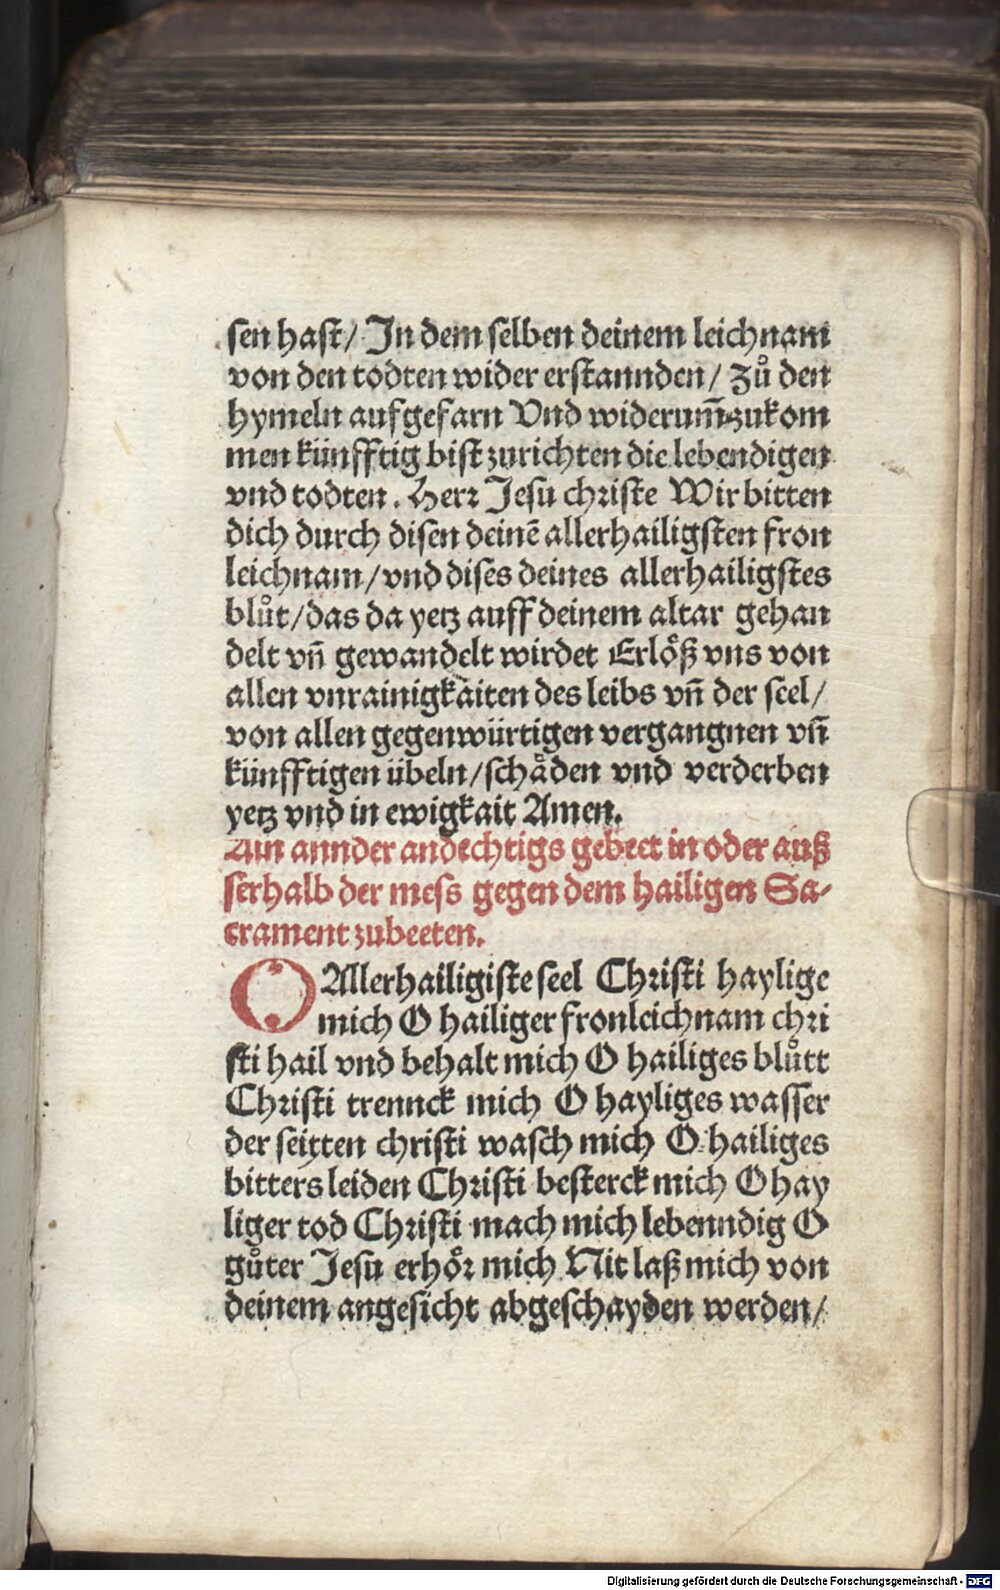 sen hast/ In dem selben deinem leichnam
von den todten wider erstannden/ zů den
hymeln aufgefarn Vnd widerum̄ zukom
men künfftig bist zurichten die lebendigen
vnd todten. Herr Jesu christe Wir bitten
dich durch disen deinē allerhailigsten fron
leichnam/vnd dises deines allerhailigstes
blůt/das da yetz auff deinem altar gehan
delt vn̄ gewandelt wirdet Erlöß vns von
allen vnrainigkaiten des leibs vn̄ der seel/
von allen gegenwürtigen vergangnen vn̄
künfftigen übeln/schåden vnd verderben
yetz vnd in ewigkait Amen.
Ain annder andechtigs gebeet in oder auß
serhalb der mess gegen dem hailigen Sa-
crament zubeeten.
O Allerhailigiste seel Christi haylige
mich O hailiger fronleichnam chri
sti hail vnd behalt mich O hailiges blůtt
Christi trennck mich O hayliges wasser
der seitten christi wasch mich O hailiges
bitters leiden Christi besterck mich O hay
liger tod Christi mach mich lebenndig O
gůter Jesu erhör mich Nit laß mich von
deinem angesicht abgeschayden werden/
Digitalisierung gefördert durch die Deutsche Forschungsgemeinschaft - DFG